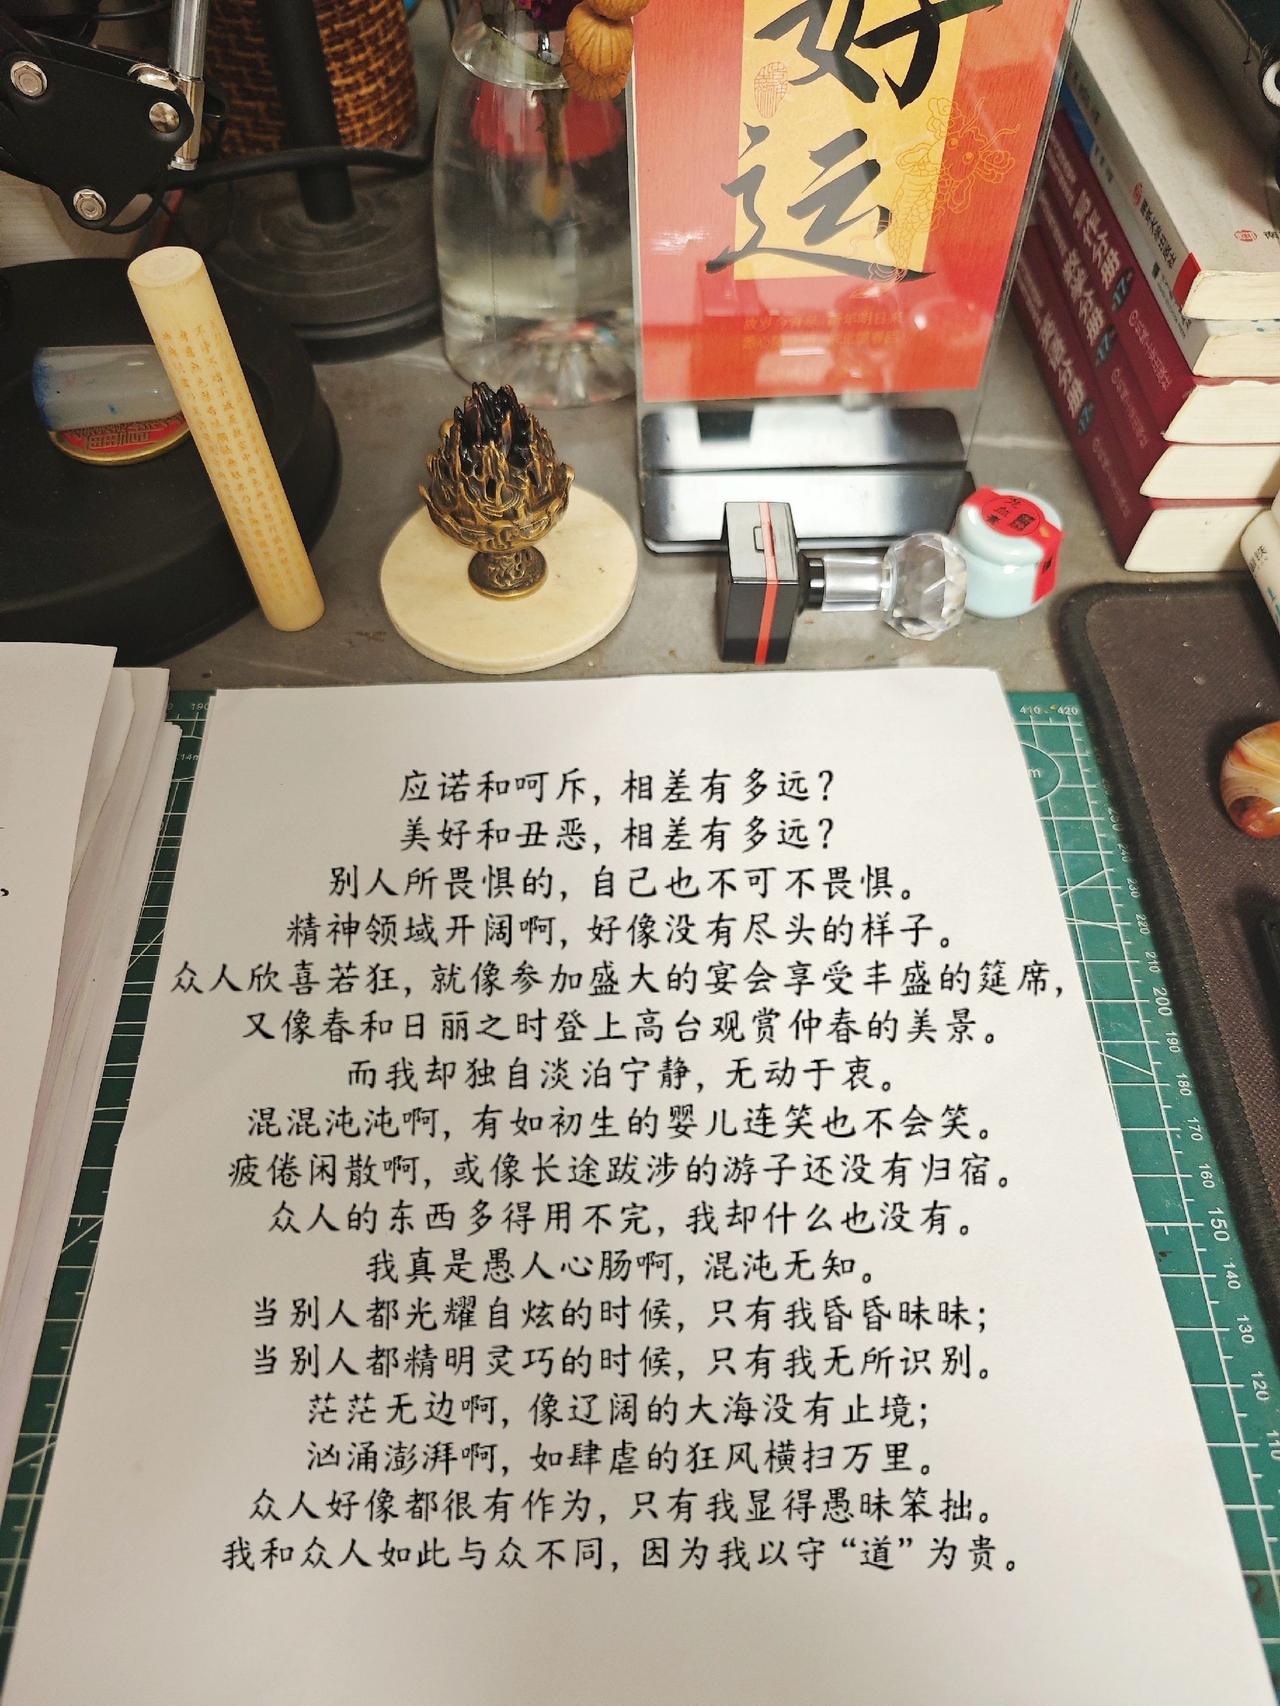 好
运
应诺和呵斥，相差有多远？
美好和丑恶，相差有多远？
别人所畏惧的，自己也不可不畏惧。
精神领域开阔啊，好像没有尽头的样子。
众人欣喜若狂，就像参加盛大的宴会享受丰盛的筵席，
又像春和日丽之时登上高台观赏仲春的美景。
而我却独自淡泊宁静，无动于衷。
混混沌沌啊，有如初生的婴儿连笑也不会笑。
疲倦闲散啊，或像长途跋涉的游子还没有归宿。
众人的东西多得用不完，我却什么也没有。
我真是愚人心肠啊，混沌无知。
当别人都光耀自炫的时候，只有我昏昏昧昧；
当别人都精明灵巧的时候，只有我无所识别。
茫茫无边啊，像辽阔的大海没有止境；
汹涌澎湃啊，如肆虐的狂风横扫万里。
众人好像都很有作为，只有我显得愚昧笨拙。
我和众人如此与众不同，因为我以守“道”为贵。
410 420
230
220
210
200
190
180
170
160
150
140
130
120
110